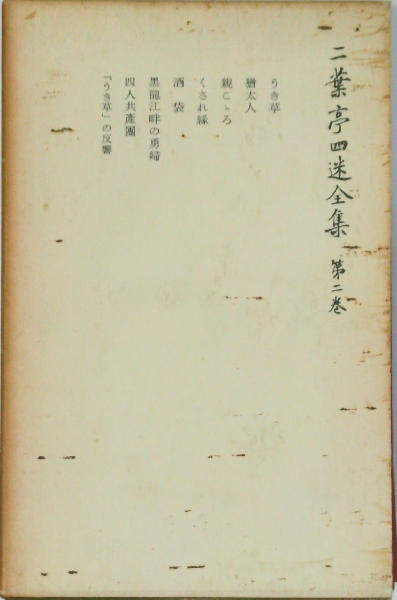 二葉亭四迷全集 第二巻
うき草
猶太人
親こゝろ
くされ縁
酒袋
黒龍江畔の勇婦
四人共産團
「うき草」の反響